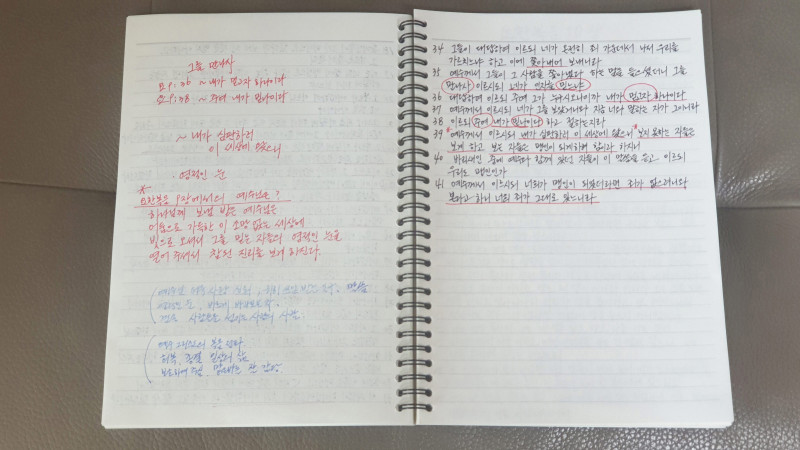 그를 만나사
요 9:36 ~ 내가 믿고자 하나이다
요 9:38 ~ 주여 내가 믿나이다
~ 내가 심판하러
이 세상에 왔으니
영적인 눈
요한복음 9장에서의 예수님은?
하나님께 보냄 받은 예수님은
어둠으로 가득한 이 소망 없는 세상에
빛으로 오셔서 그를 믿는 자들의 영적인 눈을
열어 주셔서 참된 진리를 보게 하신다.
34 그들이 대답하여 이르되 네가 온전히 죄 가운데서 나서 우리를
가르치느냐 하고 이에 쫓아내어 보내니라
35 예수께서 그들이 그 사람을 쫓아냈다 하는 말을 들으셨더니 그를
만나사 이르시되 네가 인자를 믿느냐
36 대답하여 이르되 주여 그가 누구시오니이까 내가 믿고자 하나이다
37 예수께서 이르시되 네가 그를 보았거니와 지금 너와 말하는 자가 그이니라
38 이르되 주여 내가 믿나이다 하고 절하는지라
39 예수께서 이르시되 내가 심판하러 이 세상에 왔으니 보지 못하는 자들은
보게 하고 보는 자들은 맹인이 되게하려 함이라 하시니
40 바리새인 중에 예수와 함께 있던 자들이 이 말씀을 듣고 이르되
우리도 맹인인가
41 예수께서 이르시되 너희가 맹인이 되었더라면 죄가 없으려니와
본다고 하니 너희 죄가 그대로 있느니라